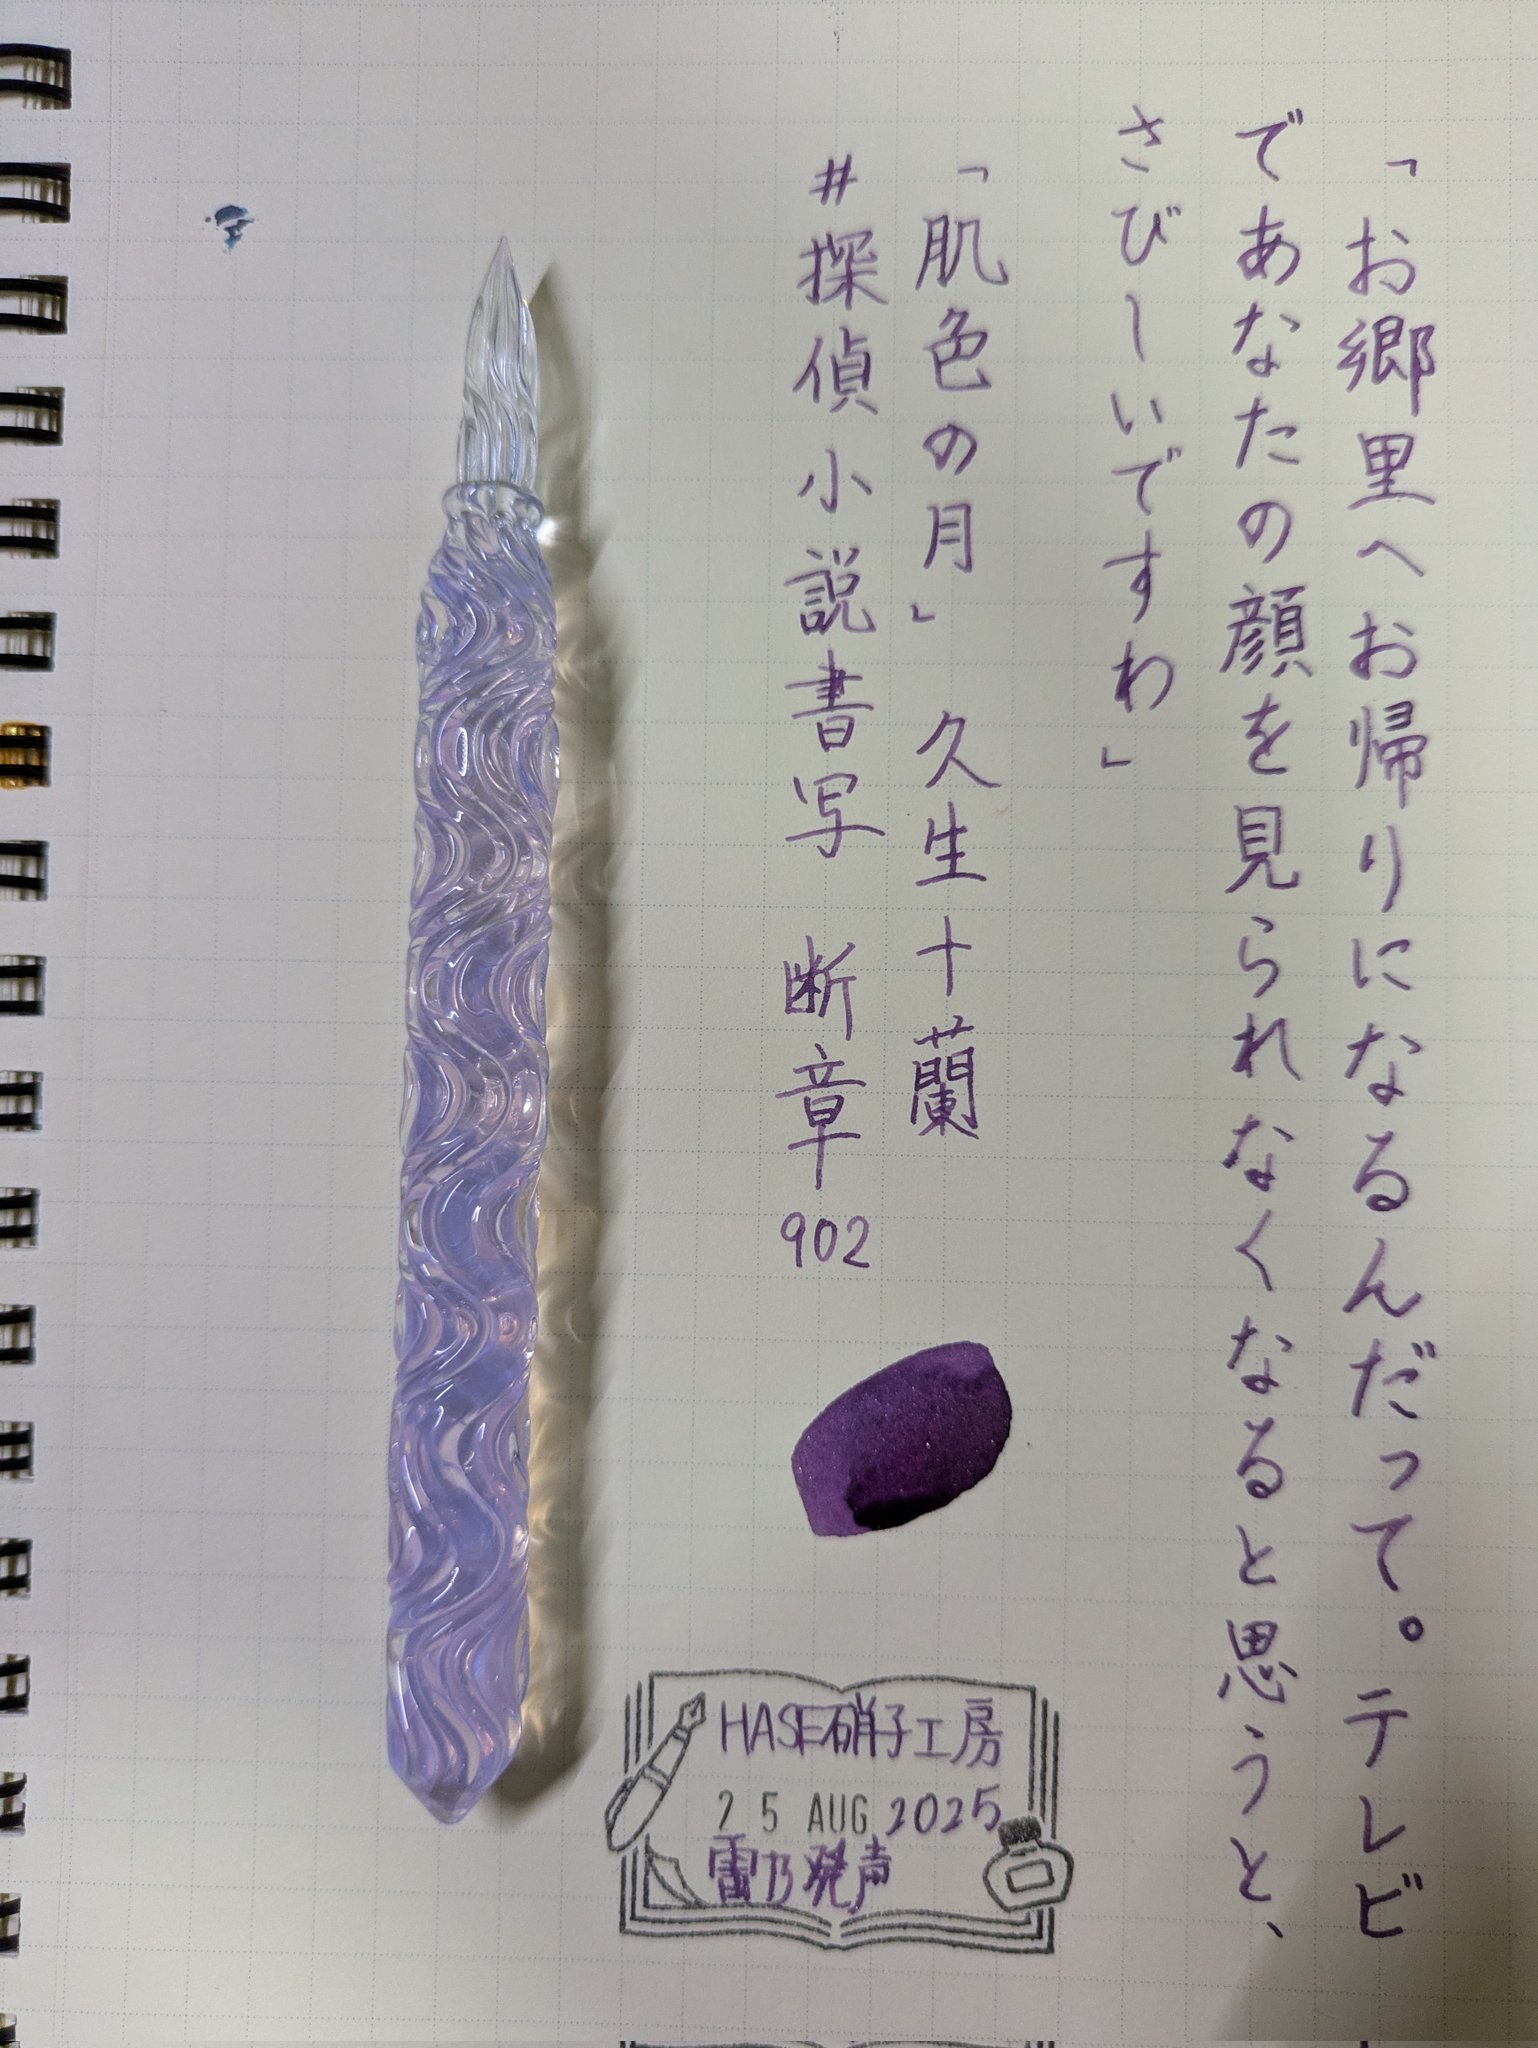 「お郷里へお帰りになるんだって。テレビ
であなたの顔を見られなくなると思うと、
さびしいですわ」
「肌色の月」 久生十蘭
#探偵小説書写 断章902
HASE硝子工房
25 AUG 2025
雷乃発声